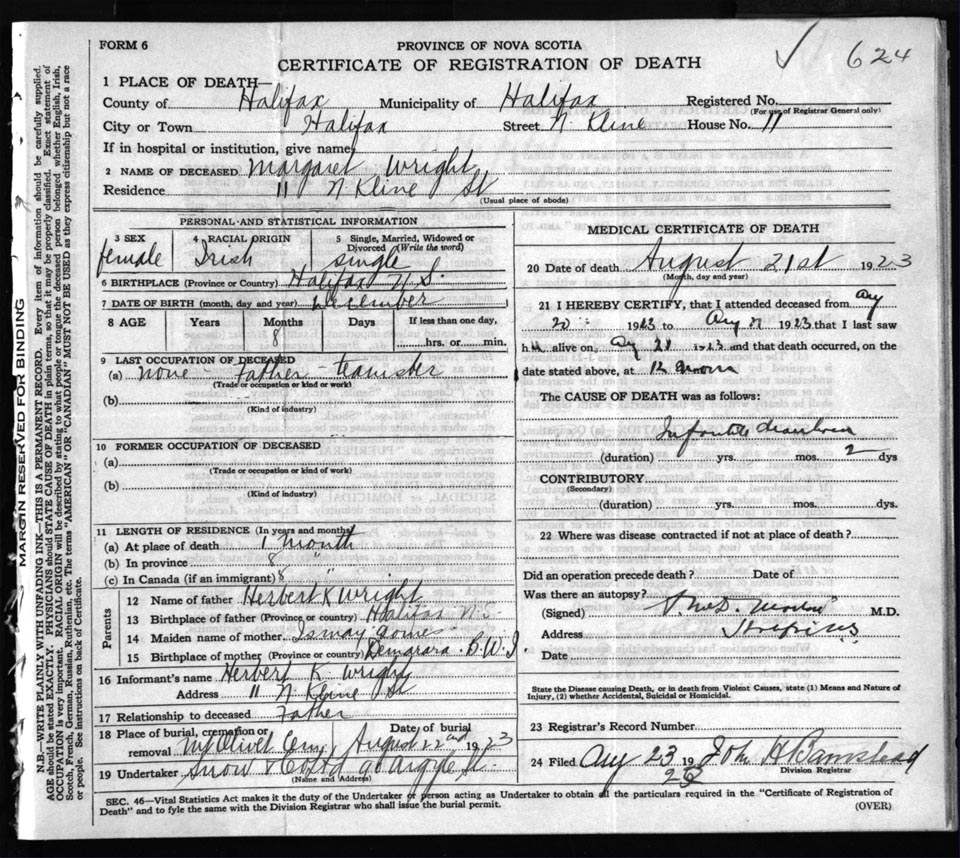 FORM 6
PROVINCE OF NOVA SCOTIA
CERTIFICATE OF REGISTRATION OF DEATH
✓ 624
1 PLACE OF DEATH—
County of Halifax Municipality of Halifax Registered No.
(For use of Registrar General only)
City or Town Halifax Street N. Kline House No. 11
If in hospital or institution, give name
2 NAME OF DECEASED Margaret Wright
Residence 11 N Kline St
(Usual place of abode)
PERSONAL AND STATISTICAL INFORMATION
3 SEX 4 RACIAL ORIGIN 5 Single, Married, Widowed or Divorced (Write the word)
female Irish single
6 BIRTHPLACE (Province or Country) Halifax N.S.
7 DATE OF BIRTH (month, day and year) December
8 AGE Years Months Days If less than one day,
8 hrs. or min.
9 LAST OCCUPATION OF DECEASED
(a) none - Father - teamster
(Trade or occupation or kind of work)
(b)
(Kind of industry)
10 FORMER OCCUPATION OF DECEASED
(a)
(Trade or occupation or kind of work)
(b)
(Kind of industry)
11 LENGTH OF RESIDENCE (In years and months)
(a) At place of death 1 month
(b) In province 8 "
(c) In Canada (if an immigrant) 8 "
Parents
12 Name of father Herbert K Wright
13 Birthplace of father (Province or country) Halifax N.S.
14 Maiden name of mother Ismay Gomes
15 Birthplace of mother (Province or country) Demarara B.W.I
16 Informant's name Herbert K Wright
Address 11 N Kline St
17 Relationship to deceased Father
18 Place of burial, cremation or removal Mt Olivet Cem Date of burial August 22nd 1923
19 Undertaker Snow & Co Ltd 90 Argyle St.
(Name and Address)
MEDICAL CERTIFICATE OF DEATH
20 Date of death August 21st 1923
(Month, day and year)
21 I HEREBY CERTIFY, that I attended deceased from Aug
20 1923 to Aug 21 1923 that I last saw
h alive on Aug 21 1923 and that death occurred, on the
date stated above, at 12 noon
The CAUSE OF DEATH was as follows:
Infantile diarrhoea
(duration) yrs. mos. 2 dys
CONTRIBUTORY
(Secondary)
(duration) yrs. mos. dys.
22 Where was disease contracted if not at place of death?
Did an operation precede death? Date of
Was there an autopsy?
(Signed) M.D.
Address
Date
State the Disease causing Death, or in death from Violent Causes, state (1) Means and Nature of
Injury, (2) whether Accidental, Suicidal or Homicidal.
23 Registrar's Record Number
24 Filed Aug 23 1923 John H Barnstead
Division Registrar
SEC. 46—Vital Statistics Act makes it the duty of the Undertaker or person acting as Undertaker to obtain all the particulars required in the "Certificate of Registration of
Death" and to fyle the same with the Division Registrar who shall issue the burial permit.
(OVER)
MARGIN RESERVED FOR BINDING
N.B.—WRITE PLAINLY WITH UNFADING INK—THIS IS A PERMANENT RECORD. Every item of information should be carefully supplied.
AGE should be stated EXACTLY. PHYSICIANS should STATE CAUSE OF DEATH in plain terms, so that it may be properly classified. Exact statement of
OCCUPATION is very important. RACIAL ORIGIN will be described by stating to what people or tongue the deceased person belonged whether English, Irish,
Scotch, French, German, Russian, Ruthenian, etc. The terms "AMERICAN" or "CANADIAN" MUST NOT BE USED as they express citizenship but not a race
or people. See instructions on back of Certificate.